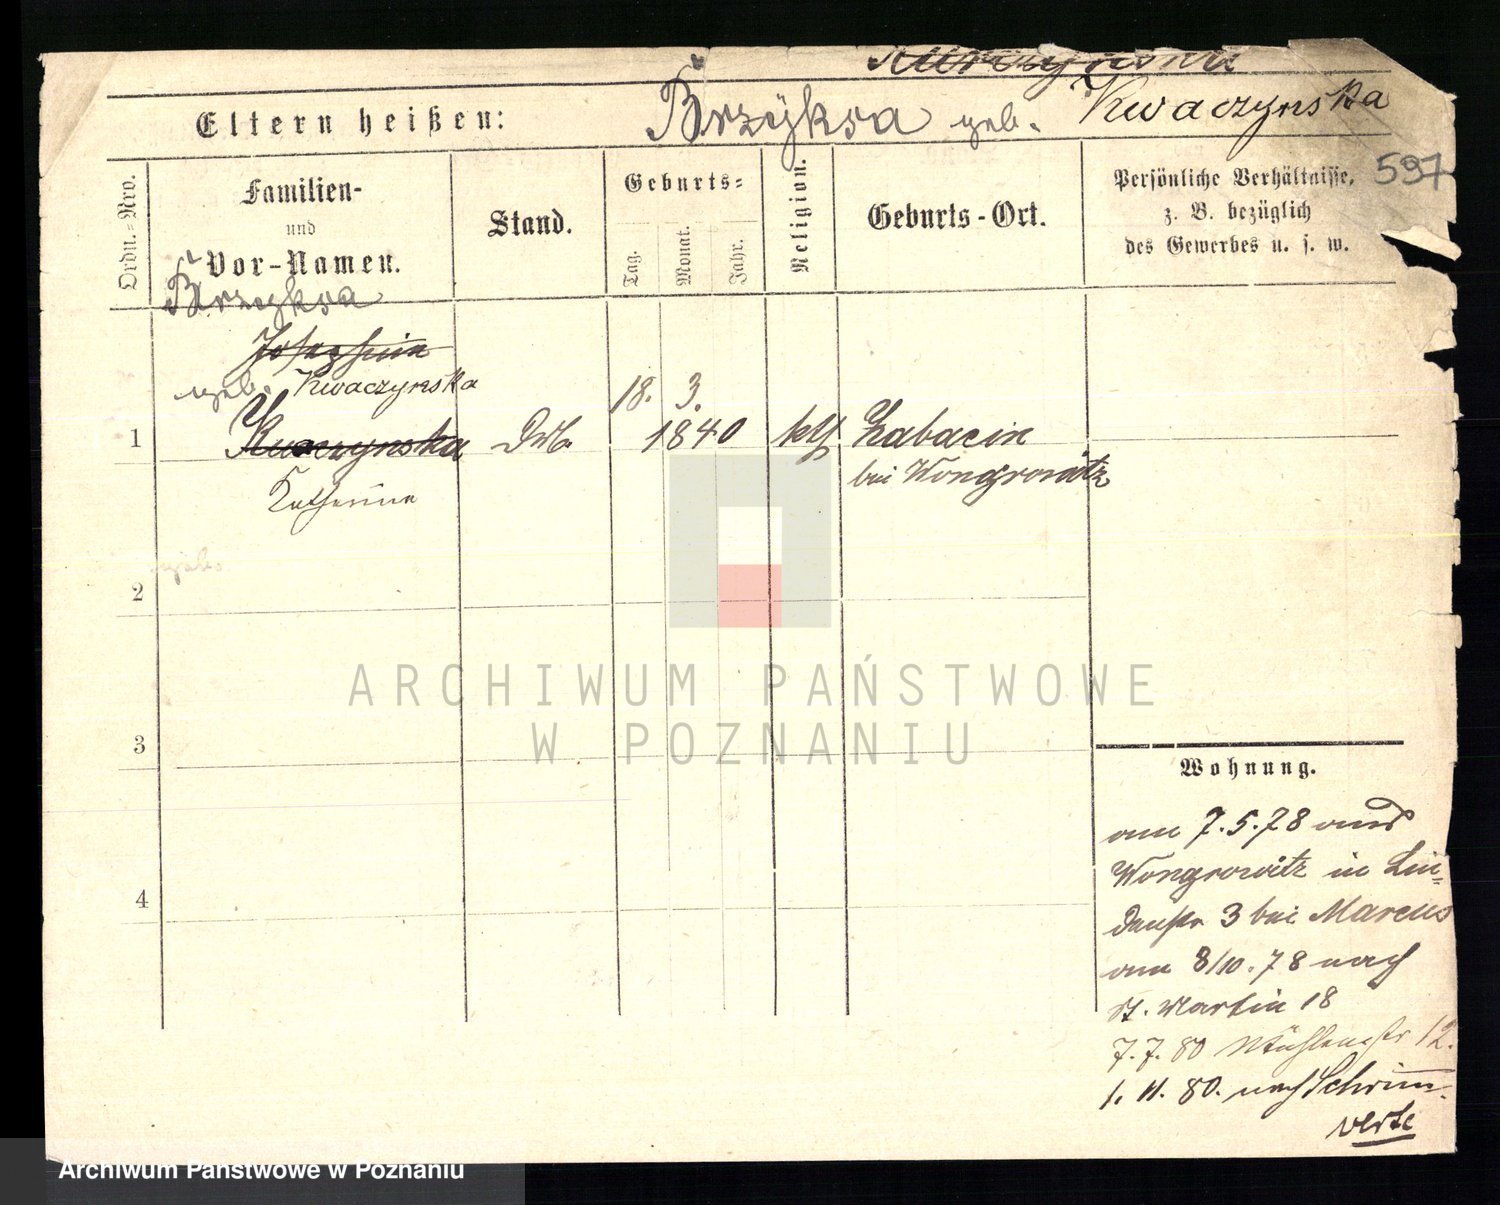 Eltern heißen: Brzÿksa geb. Kwaczynska
597
Ordn.-Nro.
Familien-
und
Vor-Namen.
Stand.
Geburts-
Tag.
Monat.
Jahr.
Religion.
Geburts-Ort.
Persönliche Verhältnisse,
z. B. bezüglich
des Gewerbes u. s. w.
Brzyksa
Josephina
geb. Kwaczynska
18. 3.
1 Kwaczynska 1840 kth Zabacin
bei Wongrowitz
Katharina
geb.
2
3
4
ARCHIWUM PAŃSTWOWE
W POZNANIU
Wohnung.
am 7.5.78 aus
Wongrowitz in Lin-
denstr 3 bei Marcus
am 8/10.78 nach
St. Martin 18
7.7.80 Mühlenstr 12.
1. 11. 80. nach Schrimm.
verte
Archiwum Państwowe w Poznaniu